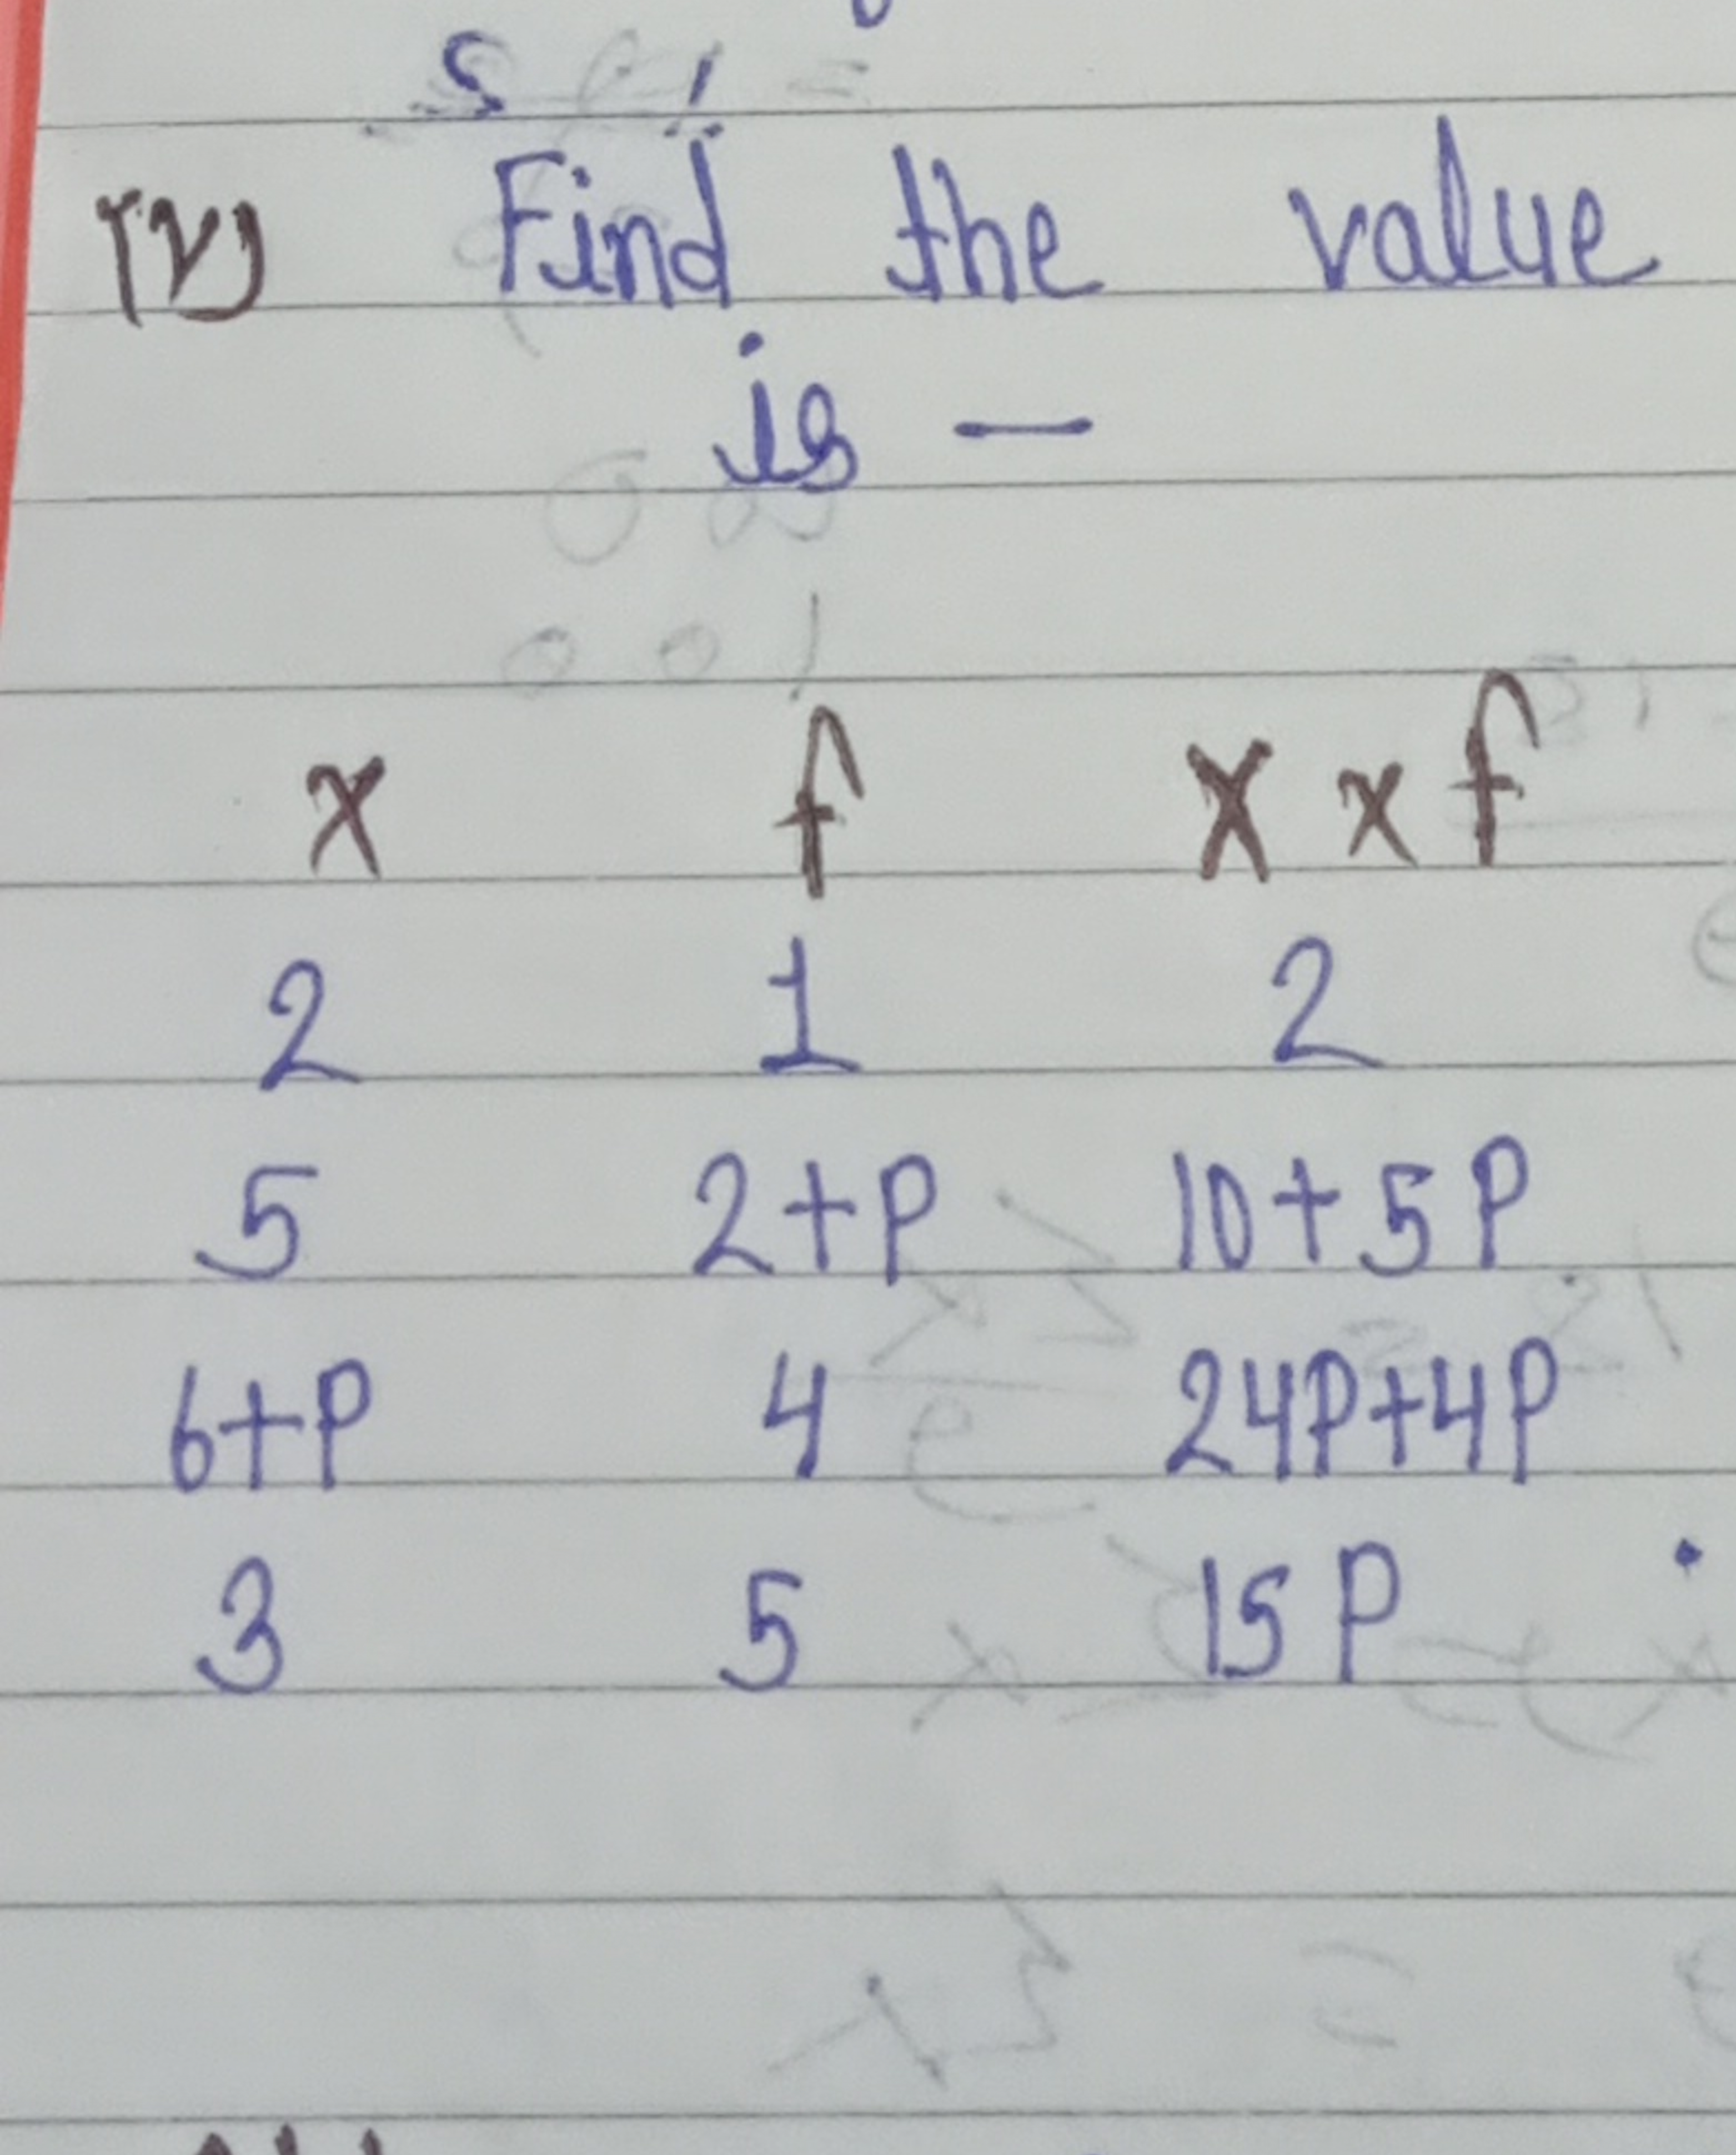 (V) Find the value
is —
x f X x f
2 1 2
5 2+P 10+5P
6+P 4 24P+4P
3 5 15P